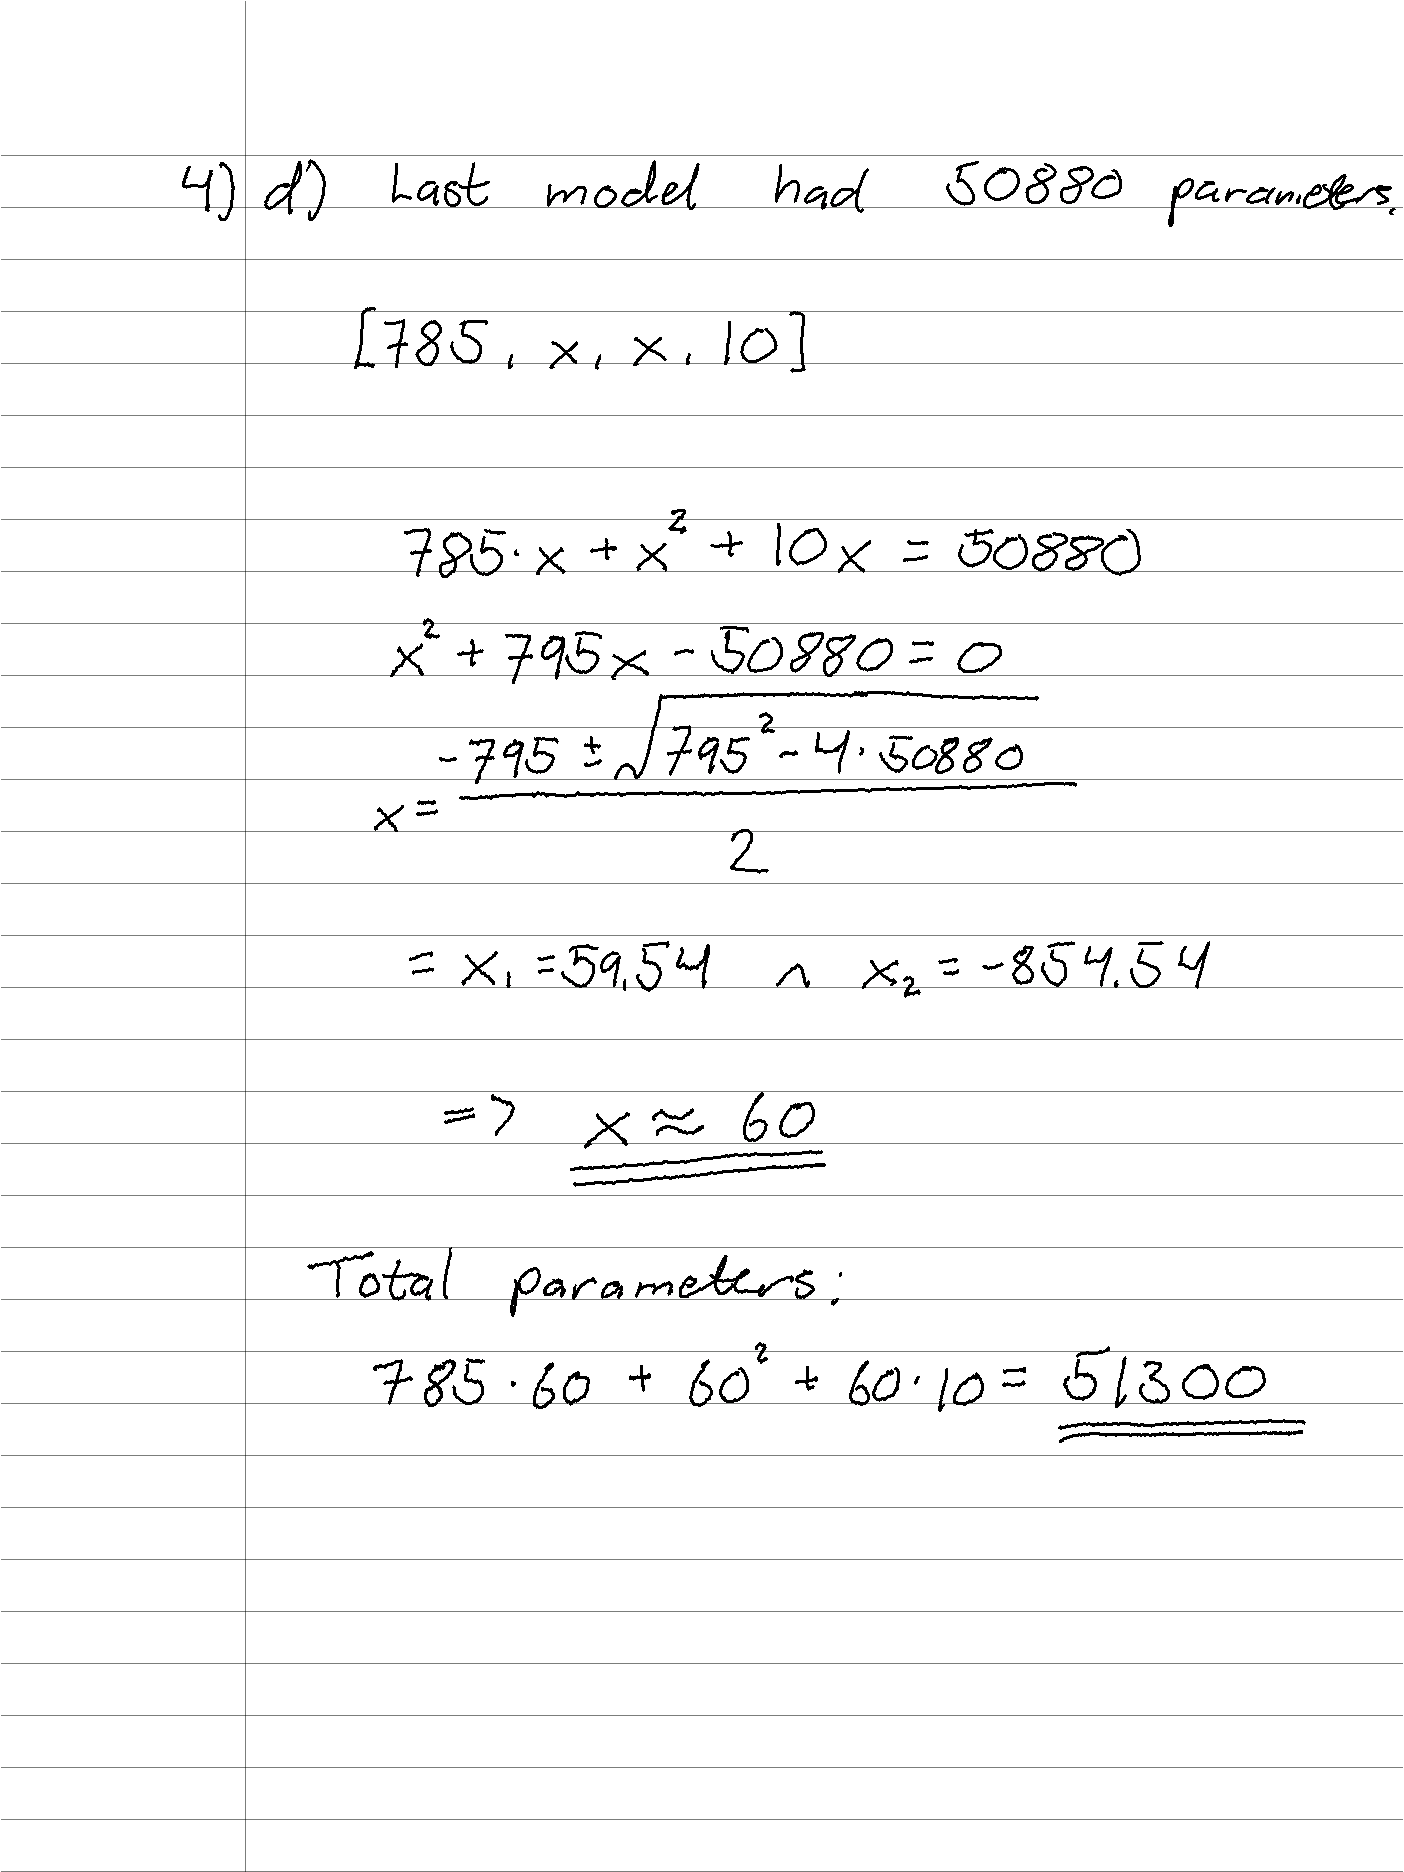 4) d) Last model had 50880 parameters.
[785, x, x, 10]
785·x + x² + 10x = 50880
x² + 795x - 50880 = 0
x = (-795 ± √(795² - 4·50880)) / 2
= x₁ = 59.54 ∧ x₂ = -854.54
=> x ≈ 60
Total parameters:
785·60 + 60² + 60·10 = 51300